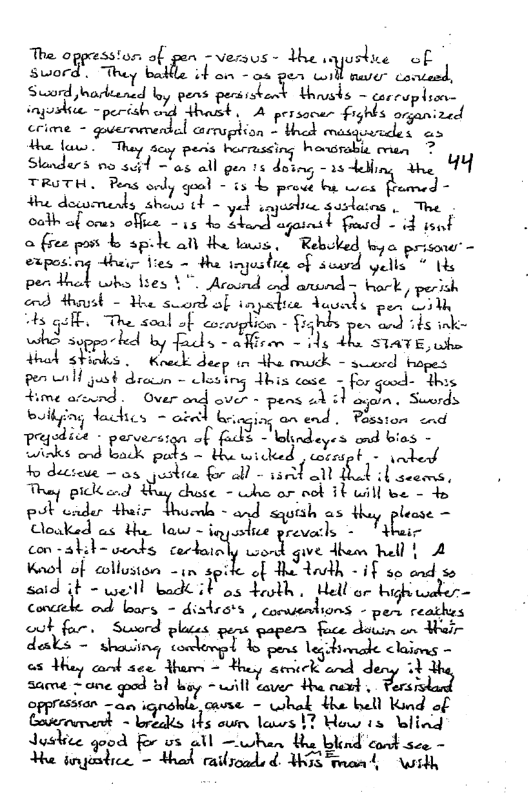 The oppression of pen - versus - the injustice of
sword. They battle it on - as pen will never conceed.
Sword, harkened by pens persistant thrusts - corruption-
injustice - perish and thrust. A prisoner fights organized
crime - governmental corruption - that masquerades as
the law. They say pens harrassing honorable men ?
Slanders no suit - as all pen is doing - is telling the 44
TRUTH. Pens only goal - is to prove he was framed -
the documents show it - yet injustice sustains. The
oath of ones office - is to stand against fraud - it isnt
a free pass to spite all the laws. Rebuked by a prisoner -
exposing their lies - the injustice of sword yells " Its
pen that who lies ! ". Around and around - hark, perish
and thrust - the sword of injustice taunts pen with
its guff. The soal of corruption - fights pen and its ink-
who supported by facts - affirm - its the STATE, who
that stinks. Kneck deep in the muck - sword hopes
pen will just drown - closing this case - for good - this
time around. Over and over - pens at it again. Swords
bullying tactics - ain't bringing an end. Passion and
prejudice - perversion of facts - blind eyes and bias -
winks and back pats - the wicked, corrupt - intend
to decieve - as justice for all - isn't all that it seems.
They pick and they chose - who or not it will be - to
put under their thumb - and squish as they please -
cloaked as the law - injustice prevails - their
con - stit - uents certainly wont give them hell ! A
Knot of collusion - in spite of the truth - if so and so
said it - we'll back it as truth. Hell or high water -
concrete and bars - distro's, conventions - pen reaches
out far. Sword places pens papers face down on their
desks - showing contempt to pens legitimate claims -
as they cant see them - they smirk and deny it the
same - one good ol boy - will cover the next. Persistant
oppression - an ignoble cause - what the hell kind of
Government - breaks its own laws !? How is blind
Justice good for us all - when the blind cant see -
the injustice - that railroaded this man ! With